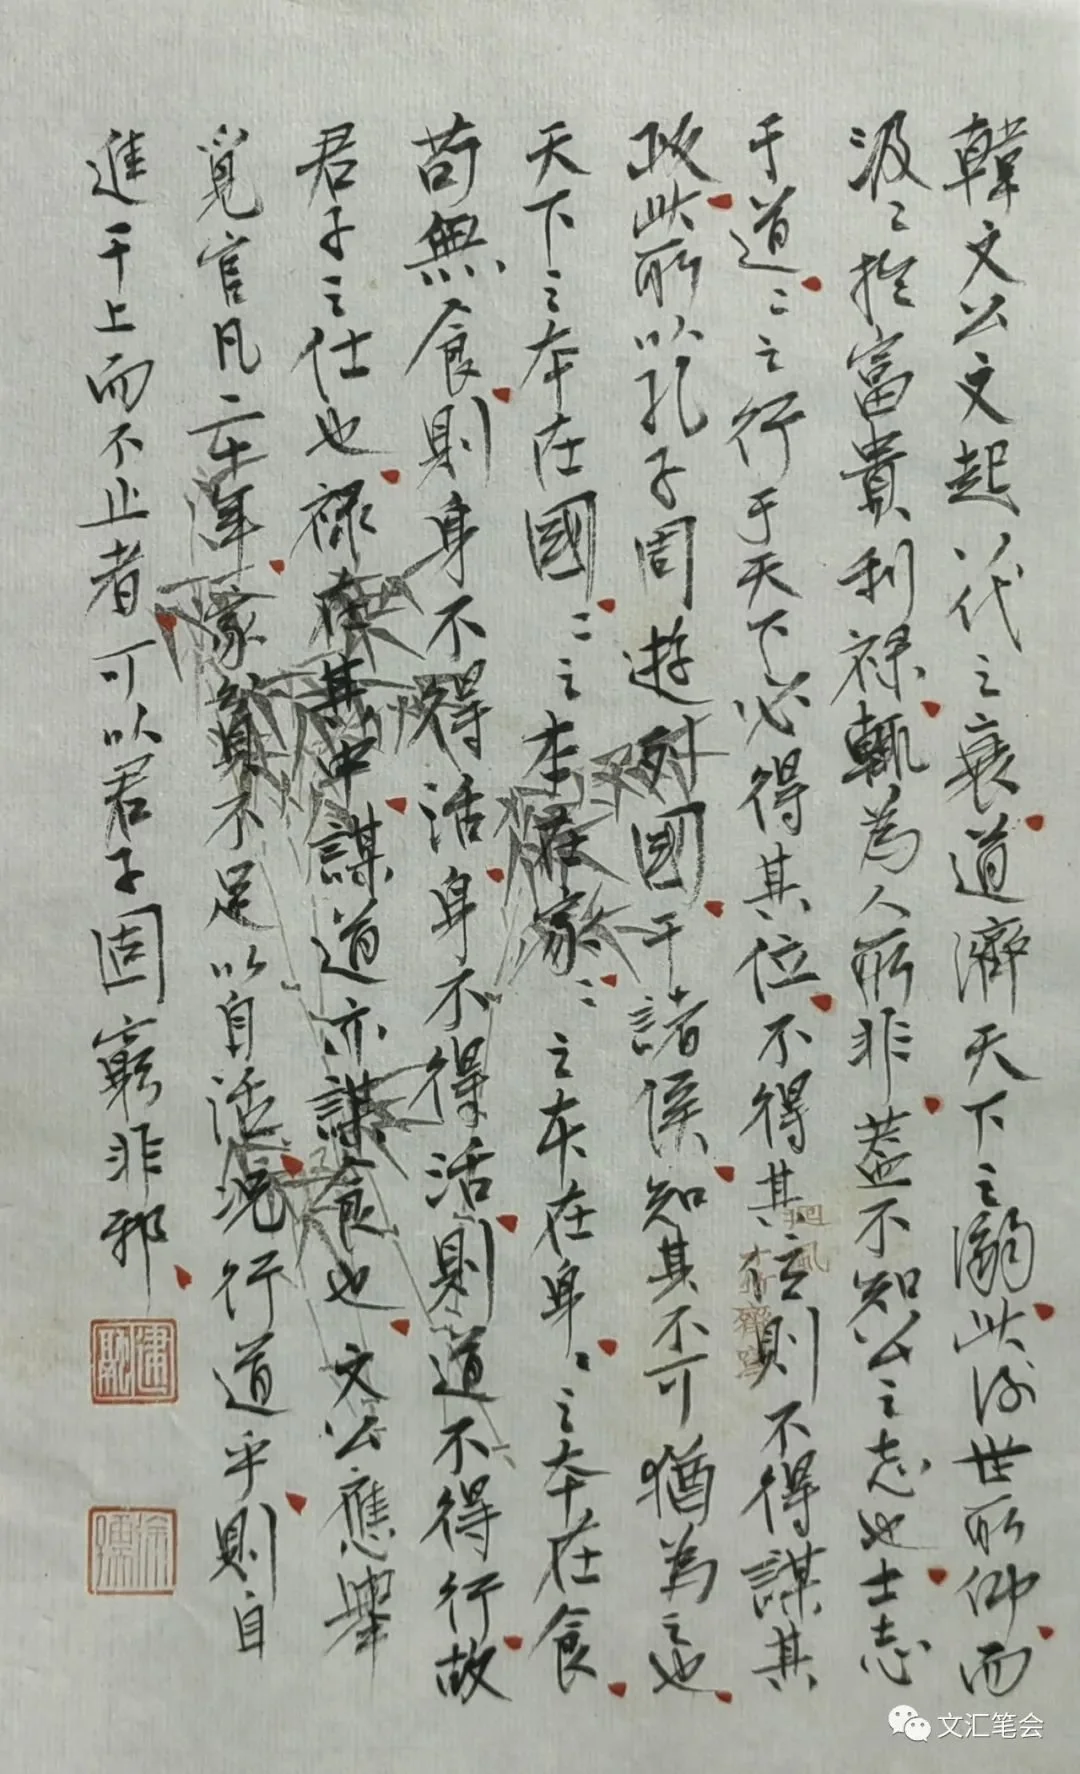 韓文公文起八代之衰道濟天下之溺此後世所仰而
汲〻於富貴利祿輒為人所非蓋不知公之志也士志
于道〻之行于天下必得其位不得其位則不得謀其
政此所以孔子周遊列國干諸侯知其不可猶為之也
天下之本在國〻之本在家〻之本在身〻之本在食
苟無食則身不得活身不得活則道不得行故
君子之仕也祿在其中謀道亦謀食也文公應舉
覓官凡二十年家貧不足以自活況行道乎則自
進干上而不止者可以君子固窮非邪
文汇笔会